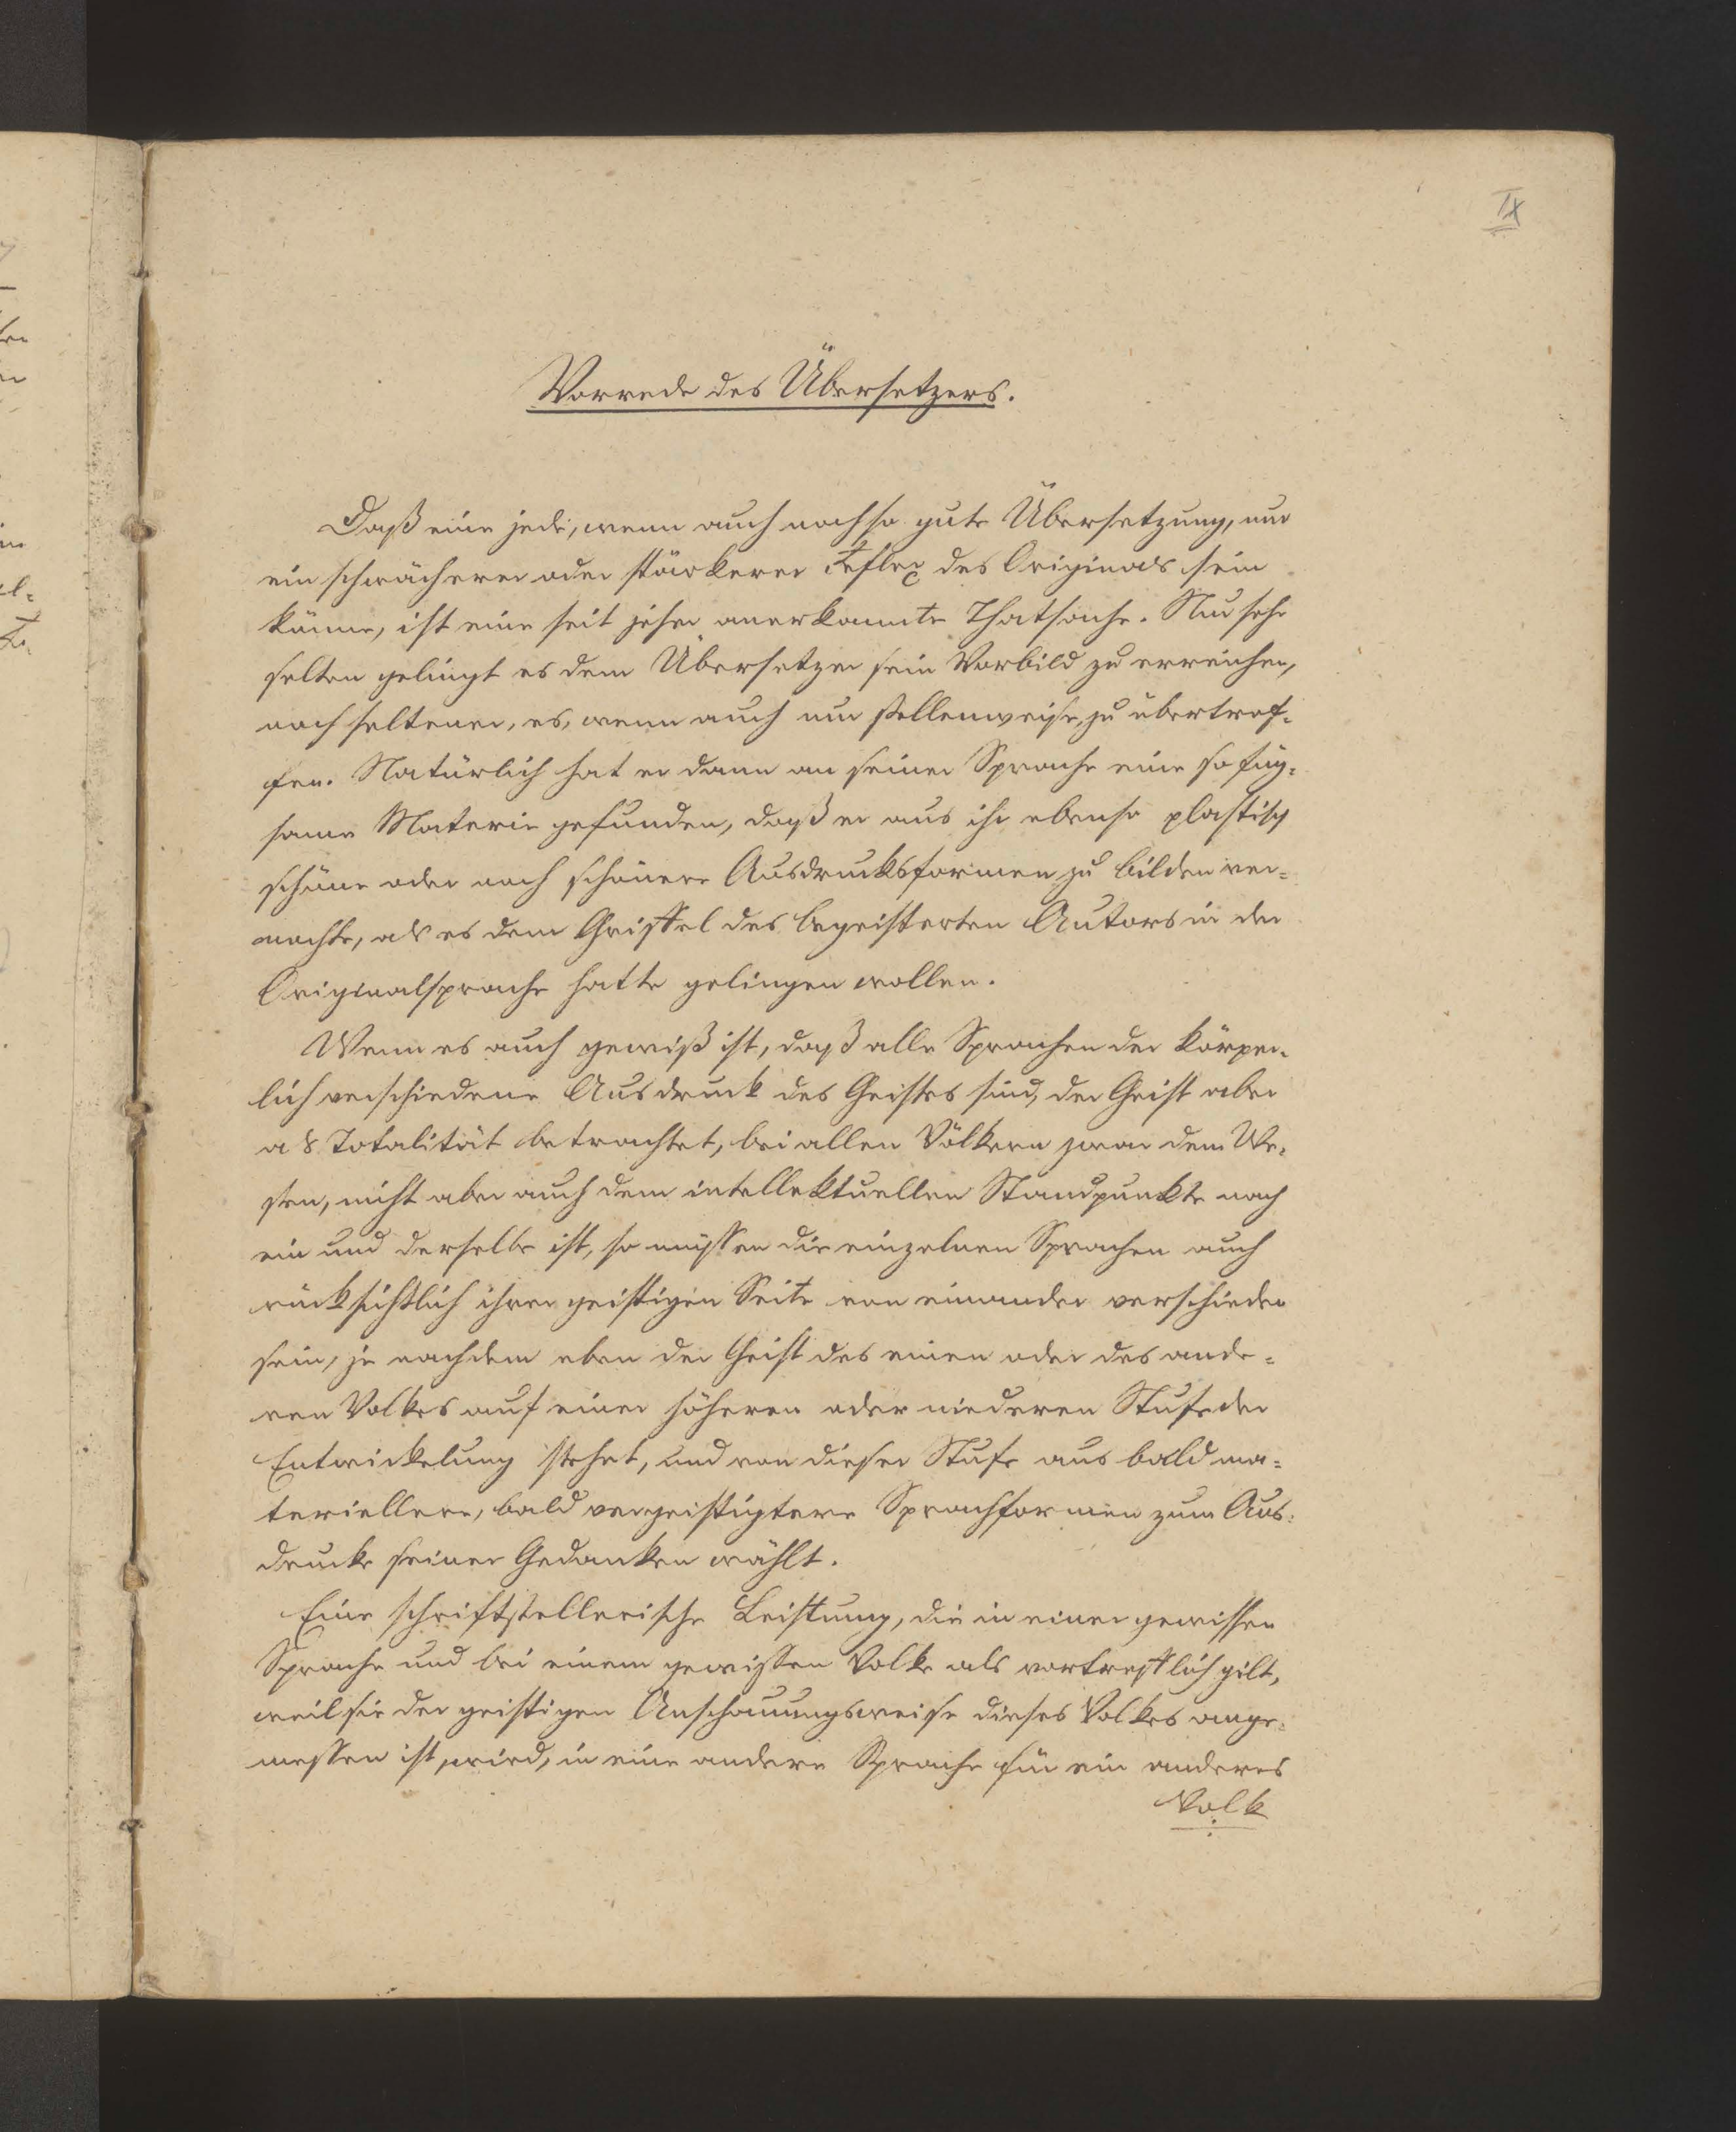 IX
Vorrede des Übersetzers.
Daß eine jede, wenn auch noch so gute Übersetzung, nur
ein schwächerer oder stärkerer Reflex des Originals sein
könne, ist eine seit jeher anerkannte Thatsache. Nur sehr
selten gelingt es dem Übersetzer sein Vorbild zu erreichen,
noch seltener, es, wenn auch nur stellenweise, zu übertref-
fen. Natürlich hat er dann an seiner Sprache eine so füg-
same Materie gefunden, daß er aus ihr ebenso plastisch
schöne oder noch schönere Ausdrucksformen zu bilden ver-
mochte, als es dem Griffel des begeisterten Autors in der
Originalsprache hatte gelingen wollen.
Wenn es auch gewiß ist, daß alle Sprachen der körper-
lich verschiedene Ausdruck des Geistes sind, der Geist aber
als Totalität betrachtet, bei allen Völkern zwar dem We-
sen, nicht aber auch dem intellektuellen Standpunkte nach
ein und derselbe ist, so müssen die einzelnen Sprachen auch
rücksichtlich ihrer geistigen Seite von einander verschieden
sein, je nachdem eben der Geist des einen oder des ande-
ren Volkes auf einer höheren oder niederen Stufe der
Entwickelung stehet, und von dieser Stufe aus bald ma-
teriellere, bald vergeistigtere Sprachformen zum Aus-
drucke seiner Gedanken wählt.
Eine schriftstellerische Leistung, die in einer gewissen
Sprache und bei einem gewissen Volke als vortrefflich gilt,
weil sie der geistigen Anschauungsweise dieses Volkes ange-
messen ist, wird, in eine andere Sprache für ein anderes
Volk